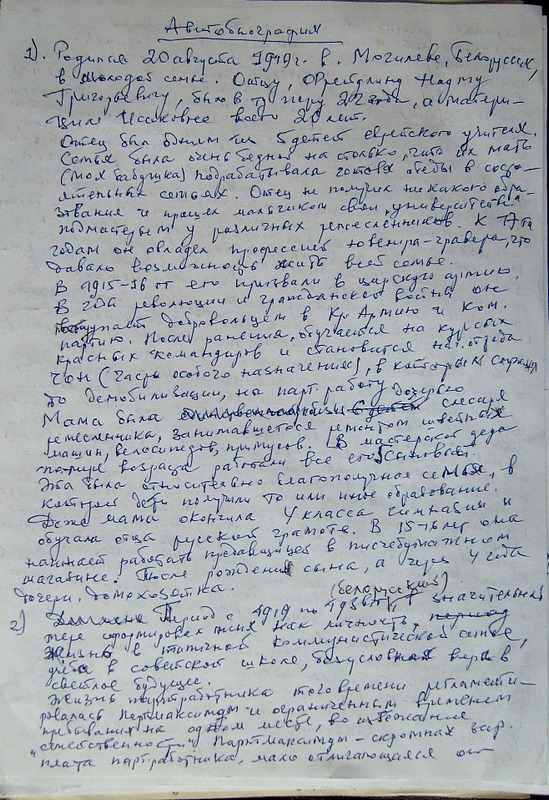 Автобиография
1). Родился 20 августа 1919 г. в г. Могилеве, Белоруссия,
в молодой семье. Отцу, Фрейдлину Науму
Григорьевичу, было в ту пору 22 года, а матери -
Циле Исаковне всего 20 лет.
Отец был одним из 5 детей еврейского учителя.
Семья была очень бедная на столько, что их мать
(моя бабушка) подрабатывала готовя обеды в состо-
ятельных семьях. Отец не получил никакого обра-
зования и прошел мальчиком свои "университеты"
подмастерьем у различных ремесленников. К 17 ти
годам он овладел профессией ювелира-гравера, что
давало возможность жить всей семье.
В 1915-16 гг его призвали в царскую армию.
В года революции и гражданской войны он
поступает добровольцем в Кр. Армию и Ком.
партию. После ранения, обучается на курсах
красных командиров и становится нач. отряда
ЧОН (Часть особого назначения), в котором служил
до демобилизации, на парт. работу
Мама была дочерью слесаря
ремесленника, занимавшегося ремонтом швейных
машин, велосипедов, примусов. В мастерской деда
работали все его сыновья.
Эта была относительно благополучная семья, в
которой дети получили то или иное образование.
Даже мама окончила 4 класса гимназии и
обучала отца русской грамоте. В 15-16 лет она
начинает работать продавщицей в писчебумажном
магазине. После рождения сына, а через 4 года
дочери, домохозяйка.
2) Период с 1919 по 1936 гг (белорусский) в значительной
мере сформировал меня как личность,
Жизнь в типичной коммунистической семье,
учёба в советской школе, безусловная вера в
светлое будущее.
Жизнь партработника того времени регламенти-
ровалась партмаксимумом и ограниченным временем
пребывания на одном месте, во избежание
"семейственности". Партмаксимум - скромная зар.
плата партработника, мало отличающаяся от